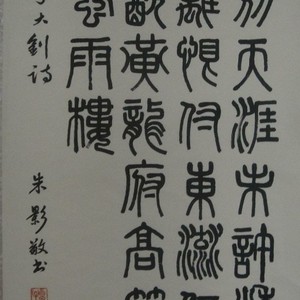 別天涯未許
離恨付東流
飲黃龍府高
風雨樓
大釗詩
朱影敬書